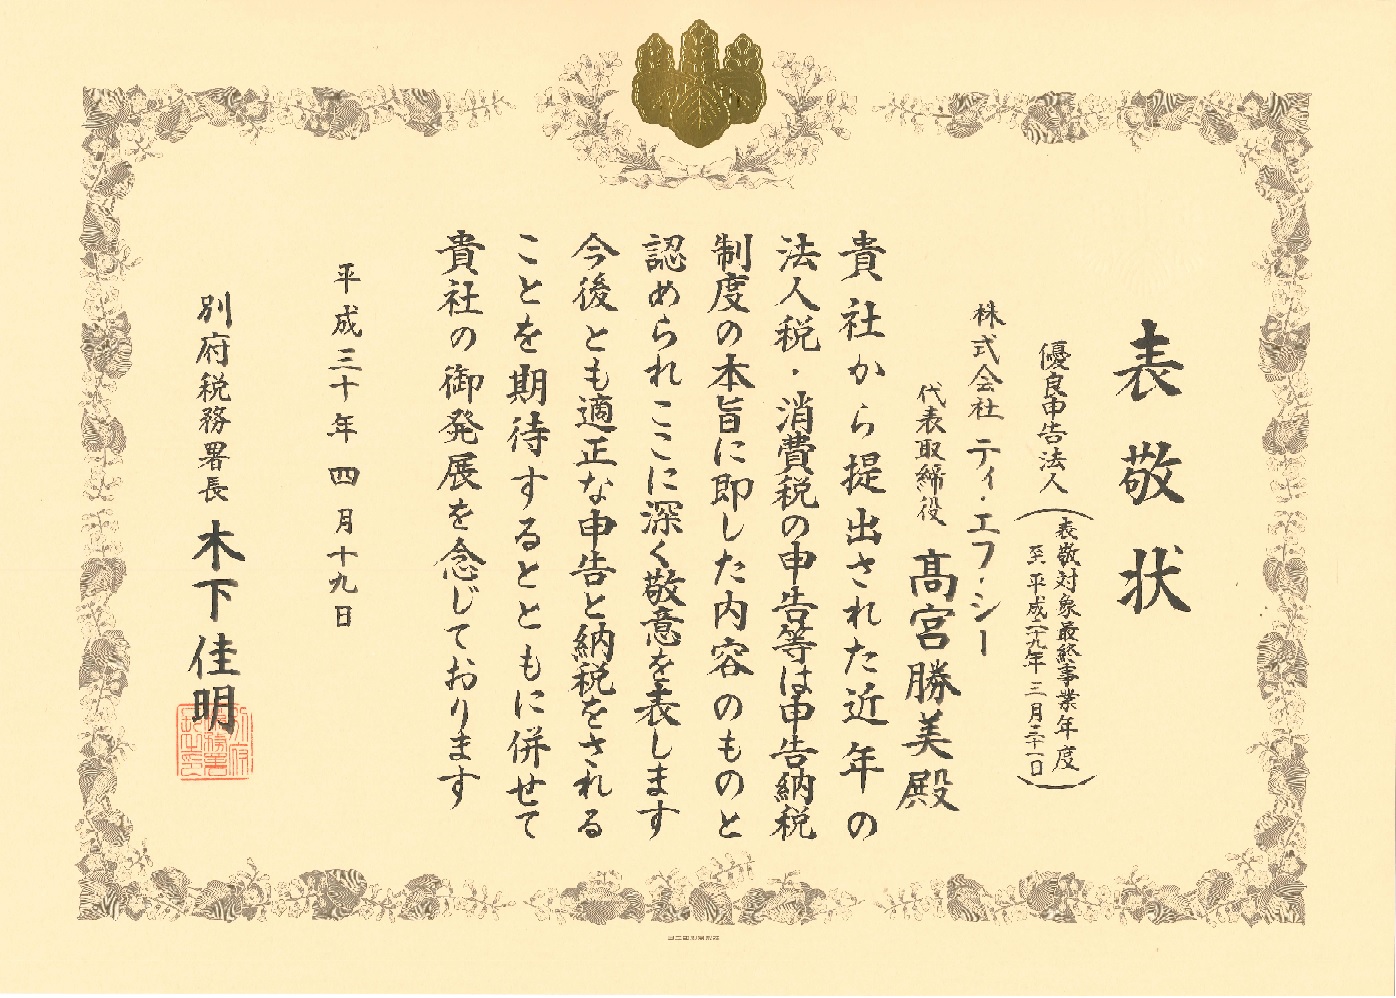 表敬状
優良申告法人
(表敬対象最終事業年度
至 平成二十九年三月三十一日)
株式会社 ティ・エフ・シー
代表取締役 髙宮勝美殿
貴社から提出された近年の
法人税・消費税の申告等は申告納税
制度の本旨に即した内容のものと
認められここに深く敬意を表します
今後とも適正な申告と納税をされる
ことを期待するとともに併せて
貴社の御発展を念じております
平成三十年四月十九日
別府税務署長 木下佳明